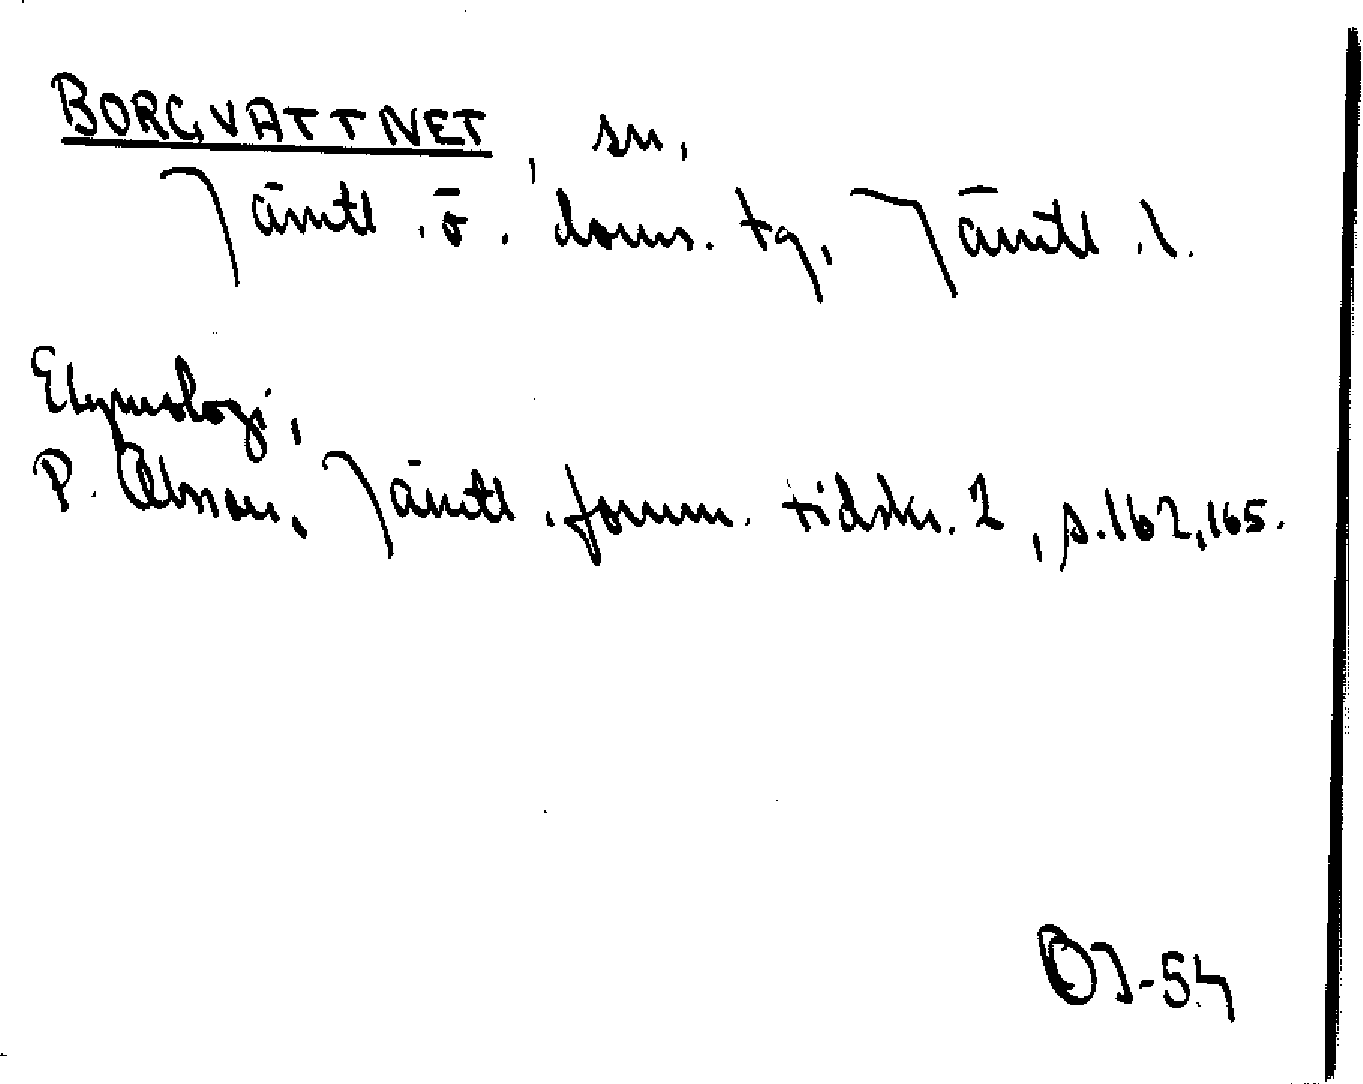 BORGVATTNET, sn,
Jämtl. ö. doms. tg, Jämtl. l.
Etymologi,
P. Olsson, Jämtl. fornm. tidskr. 2, s. 162, 165.
OJ-54